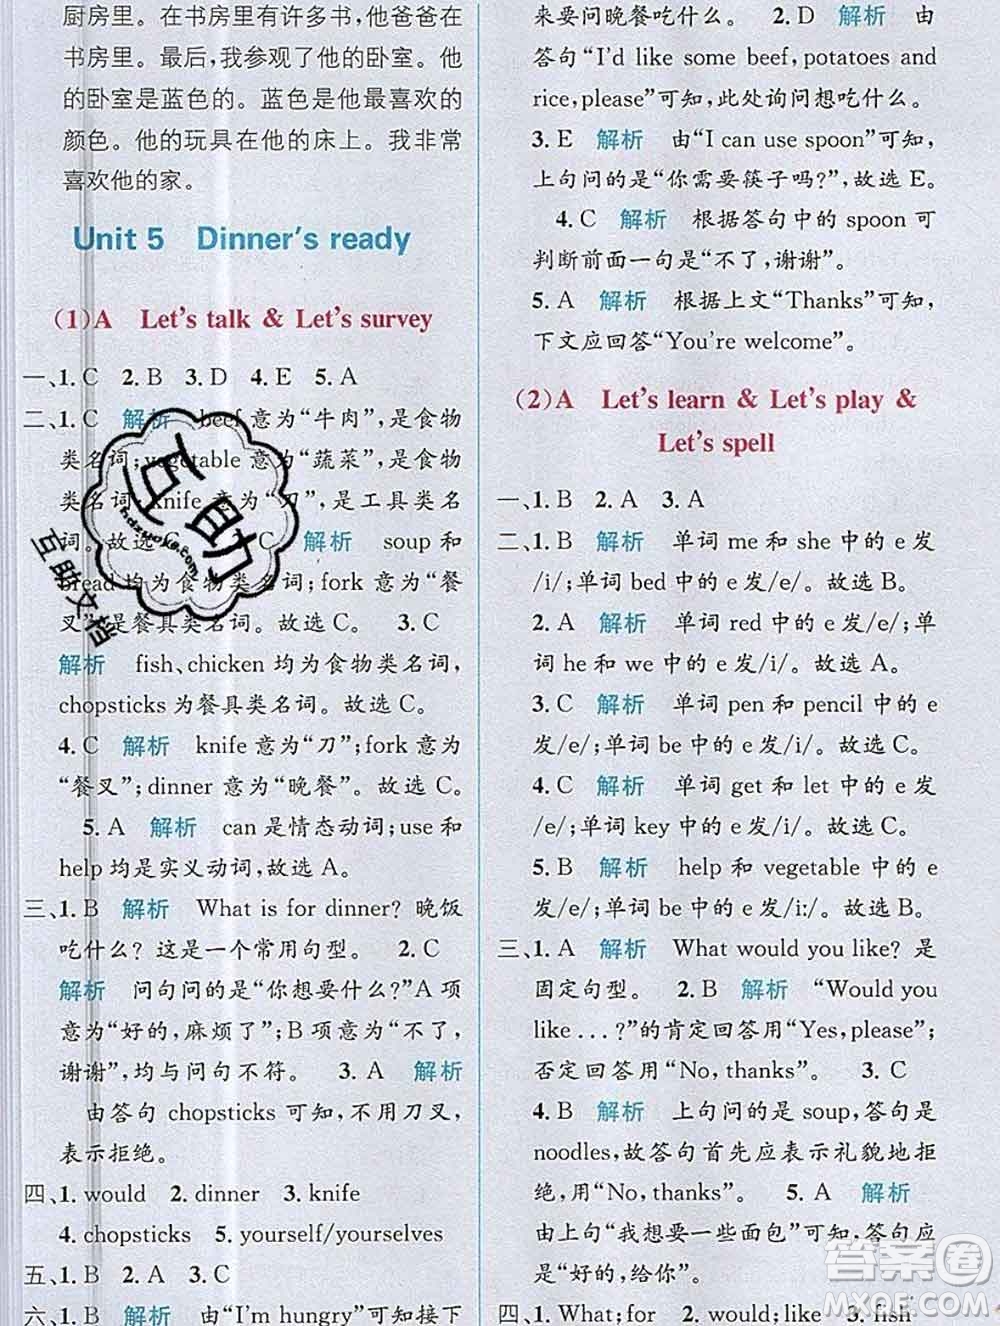 厨房里。书房里有许多书，他爸爸在
书房里。最后，我参观了他的卧室。他
的卧室是蓝色的。蓝色是他最喜欢的
颜色。他的玩具在他的床上。我非常
喜欢他的家。
Unit 5 Dinner's ready
(1)A Let's talk & Let's survey
一、1. C 2. B 3. D 4. E 5. A
二、1. C 解析 beef 意为“牛肉”,是食物
类名词;vegetable 意为“蔬菜”,是食物
类名词;knife 意为“刀”,是工具类名
词。故选 C 解析 soup 和
bread 均为食物类名词;fork 意为“餐
叉”,是餐具类名词。故选 B。 3. C
解析 fish、chicken 均为食物类名词,
chopsticks 为餐具类名词。故选 C。
4. C 解析 knife 意为“刀”;fork 意为
“餐叉”;dinner 意为“晚餐”。故选 C。
5. A 解析 can 是情态动词;use 和
help 均是实义动词,故选 A。
三、1. B 解析 What is for dinner? 晚饭
吃什么? 这是一个常用句型。 2. C
解析 问句问的是“你想要什么?”A 项
意为“好的,麻烦了”;B 项意为“不了,
谢谢”,均与问句不符。 3. A 解析
由答句 chopsticks 可知,不用刀叉,
表示拒绝。
四、1. would 2. dinner 3. knife
4. chopsticks 5. yourself/yourselves
五、1. B 2. A 3. C
六、1. B 解析 由“I'm hungry”可知接下
来要问晚餐吃什么。 2. D 解析 由
答句“I'd like some beef,potatoes and
rice,please”可知,此处询问想吃什么。
3. E 解析 由“I can use spoon”可知,
上句问的是“你需要筷子吗?”,故选 E。
4. C 解析 根据答句中的 spoon 可
判断前面一句是“不了,谢谢”。
5. A 解析 根据上文“Thanks”可知,
下文应回答“You're welcome”。
(2)A Let's learn & Let's play &
Let's spell
一、1. B 2. A 3. A
二、1. B 解析 单词 me 和 she 中的 e 发
/i/;单词 bed 中的 e 发/e/。故选 B。
2. A 解析 单词 red 中的 e 发/e/;单
词 he 和 we 中的 e 发/i/;故选 A。
3. C 解析 单词 pen 和 pencil 中的 e
发/e/;单词 be 中的 e 发/i/。故选 C。
4. C 解析 单词 get 和 let 中的 e 发
/e/;单词 key 中的 e 发/i/。故选 C。
5. B 解析 help 和 vegetable 中的 e
发/e/,she 中的 e 发/i:/。故选 B。
三、1. A 解析 What would you like? 是
固定句型。 2. B 解析 “Would you
like . . . ?”的肯定回答用“Yes,please”;
否定回答用“No,thanks”。 3. C
4. B 解析 上句问的是 soup,答句是
noodles,故答句首先应表示礼貌地拒
绝,用“No,thanks”。 5. A 解析
由上句“我想要一些面包”可知,答句应
是“好的,给你”。
四、1. What;for 2. would;like 3. fish
互助
hdzuoye.com
互助文档
答案圈